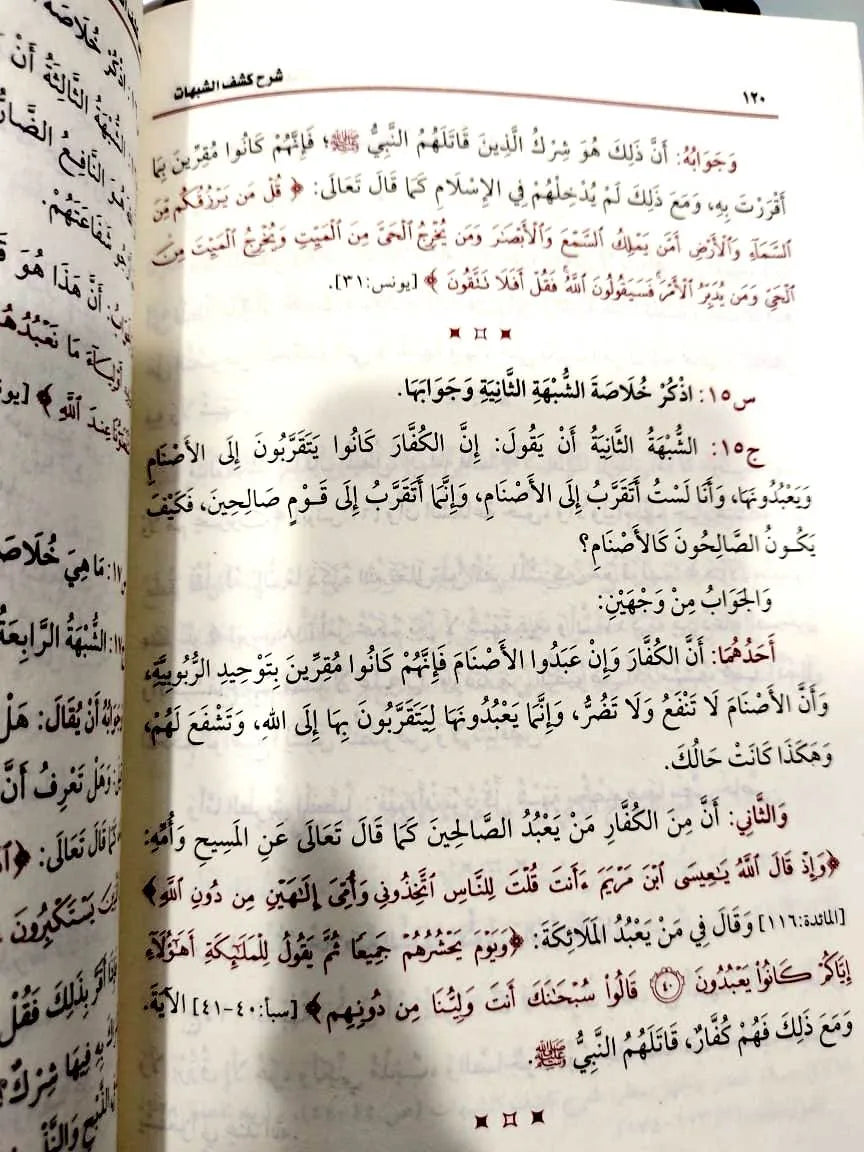 شرح كشف الشبهات
١٢٠
وَجَوَابُهُ: أَنَّ ذَلِكَ هُوَ شِرْكُ الَّذِينَ قَاتَلَهُمُ النَّبِيُّ ﷺ؛ فَإِنَّهُمْ كَانُوا مُقِرِّينَ بِمَا
أَقْرَرْتَ بِهِ، وَمَعَ ذَلِكَ لَمْ يُدْخِلْهُمْ فِي الإِسْلَامِ كَمَا قَالَ تَعَالَى: ﴿ قُلْ مَن يَرْزُقُكُم مِّنَ
السَّمَآءِ وَالْأَرْضِ أَمَّن يَمْلِكُ السَّمْعَ وَالْأَبْصَٰرَ وَمَن يُخْرِجُ الْحَيَّ مِنَ الْمَيِّتِ وَيُخْرِجُ الْمَيِّتَ مِنَ
الْحَيِّ وَمَن يُدَبِّرُ الْأَمْرَ فَسَيَقُولُونَ اللَّهُ فَقُلْ أَفَلَا تَتَّقُونَ ﴾ [يونس:٣١].
س١٥: اذْكُرْ خُلَاصَةَ الشُّبْهَةِ الثَّانِيَةِ وَجَوَابَهَا.
ج١٥: الشُّبْهَةُ الثَّانِيَةُ أَنْ يَقُولَ: إِنَّ الكُفَّارَ كَانُوا يَتَقَرَّبُونَ إِلَى الأَصْنَامِ
وَيَعْبُدُونَهَا، وَأَنَا لَسْتُ أَتَقَرَّبُ إِلَى الأَصْنَامِ، وَإِنَّمَا أَتَقَرَّبُ إِلَى قَوْمٍ صَالِحِينَ، فَكَيْفَ
يَكُونُ الصَّالِحُونَ كَالأَصْنَامِ؟
وَالجَوَابُ مِنْ وَجْهَيْنِ:
أَحَدُهُمَا: أَنَّ الكُفَّارَ وَإِنْ عَبَدُوا الأَصْنَامَ فَإِنَّهُمْ كَانُوا مُقِرِّينَ بِتَوْحِيدِ الرُّبُوبِيَّةِ،
وَأَنَّ الأَصْنَامَ لَا تَنْفَعُ وَلَا تَضُرُّ، وَإِنَّمَا يَعْبُدُونَهَا لِيَتَقَرَّبُونَ بِهَا إِلَى اللهِ، وَتَشْفَعَ لَهُمْ،
وَهَكَذَا كَانَتْ حَالُكَ.
وَالثَّانِي: أَنَّ مِنَ الكُفَّارِ مَنْ يَعْبُدُ الصَّالِحِينَ كَمَا قَالَ تَعَالَى عَنِ المَسِيحِ وَأُمِّهِ:
﴿وَإِذْ قَالَ اللَّهُ يَٰعِيسَى ابْنَ مَرْيَمَ ءَأَنتَ قُلْتَ لِلنَّاسِ اتَّخِذُونِي وَأُمِّيَ إِلَٰهَيْنِ مِن دُونِ اللَّهِ﴾
[المائدة:١١٦] وَقَالَ فِي مَنْ يَعْبُدُ المَلَائِكَةَ: ﴿وَيَوْمَ يَحْشُرُهُمْ جَمِيعًا ثُمَّ يَقُولُ لِلْمَلَٰٓئِكَةِ أَهَٰٓؤُلَآءِ
إِيَّاكُمْ كَانُوا۟ يَعْبُدُونَ ٤٠ قَالُوا۟ سُبْحَٰنَكَ أَنتَ وَلِيُّنَا مِن دُونِهِم﴾ [سبأ:٤٠-٤١] الآيَةَ.
وَمَعَ ذَلِكَ فَهُمْ كُفَّارٌ، قَاتَلَهُمُ النَّبِيُّ ﷺ.
اذْكُرْ خُلَاصَةَ
الشُّبْهَةُ الثَّالِثَةُ أَنْ
هُوَ النَّافِعُ
شَفَاعَتَهُمْ.
أَنَّ هَذَا هُوَ
مَا نَعْبُدُهُمْ
عِندَ اللَّهِ ﴾
مَا هِيَ خُلَاصَةُ
الشُّبْهَةُ الرَّابِعَةُ
أَنْ يُقَالَ: هَلْ
وَهَلْ تَعْرِفُ أَنَّ
كَمَا قَالَ تَعَالَى:
يَسْتَكْبِرُونَ
أَقَرَّ بِذَلِكَ فَقُلْ
بِهِ فِيهَا شِرْكٌ